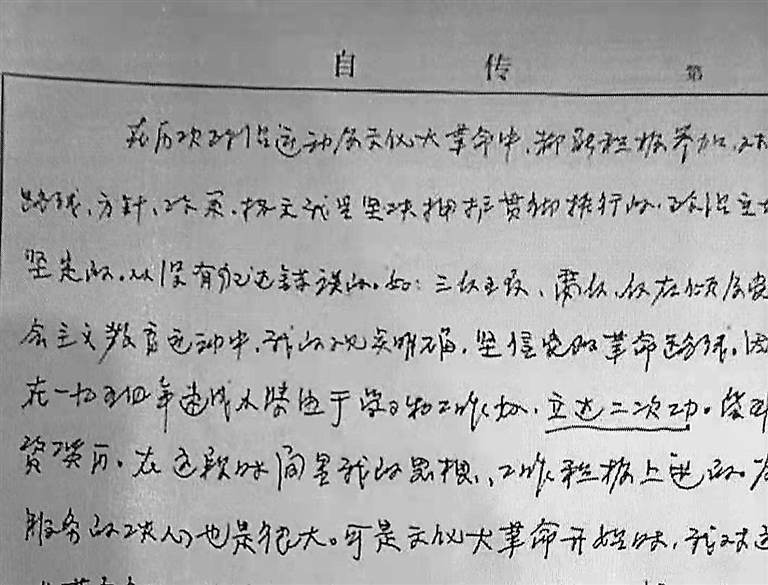 自 传 第
在历次政治运动及文化大革命中，都能积极参加，对
路线、方针、政策，核心我是坚决拥护贯彻执行的，政治立场
坚定的。从没有犯过错误的。如：三反五反、肃反、反右倾及
会主义教育运动中，我的观点明确，坚信党的革命路线。因
在一九五四年速成 由于学习和工作，立过二次功。
资 历。在这段时间里我的思想、工作积极上进的。为
服务的决心也是很大。可是文化大革命开始时，我对这